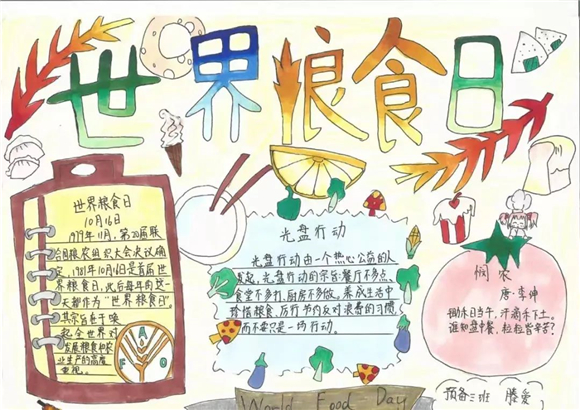 世界粮食日
世界粮食日
10月16日
1979年11月，第20届联
合国粮农组织大会决议确
定，1981年10月16日是首届世
界粮食日，此后每年的这一
天都作为“世界粮食日”。
其宗旨在于唤
起全世界对
发展粮食和农
业生产的高度
重视。
FAO
光盘行动
光盘行动由一个热心公益的人
发起，光盘行动的宗旨：餐厅不多点、
食堂不多打、厨房不多做。养成生活中
珍惜粮食、厉行节约反对浪费的习惯，
而不要只是一场行动。
悯农
唐·李绅
锄禾日当午，汗滴禾下土。
谁知盘中餐，粒粒皆辛苦？
World Food Day
预备三班 滕爱